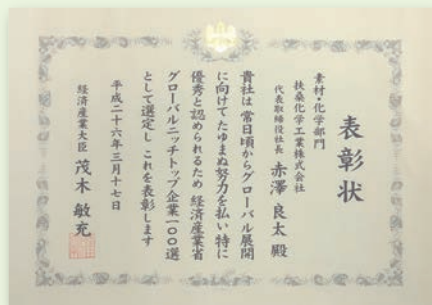 表彰状
素材・化学部門
扶桑化学工業株式会社
代表取締役社長 赤澤 良太 殿
貴社は 常日頃からグローバル展開
に向けてたゆまぬ努力を払い 特に
優秀と認められるため 経済産業省
グローバルニッチトップ企業一〇〇選
として選定し これを表彰します
平成二十六年三月十七日
経済産業大臣 茂木 敏充